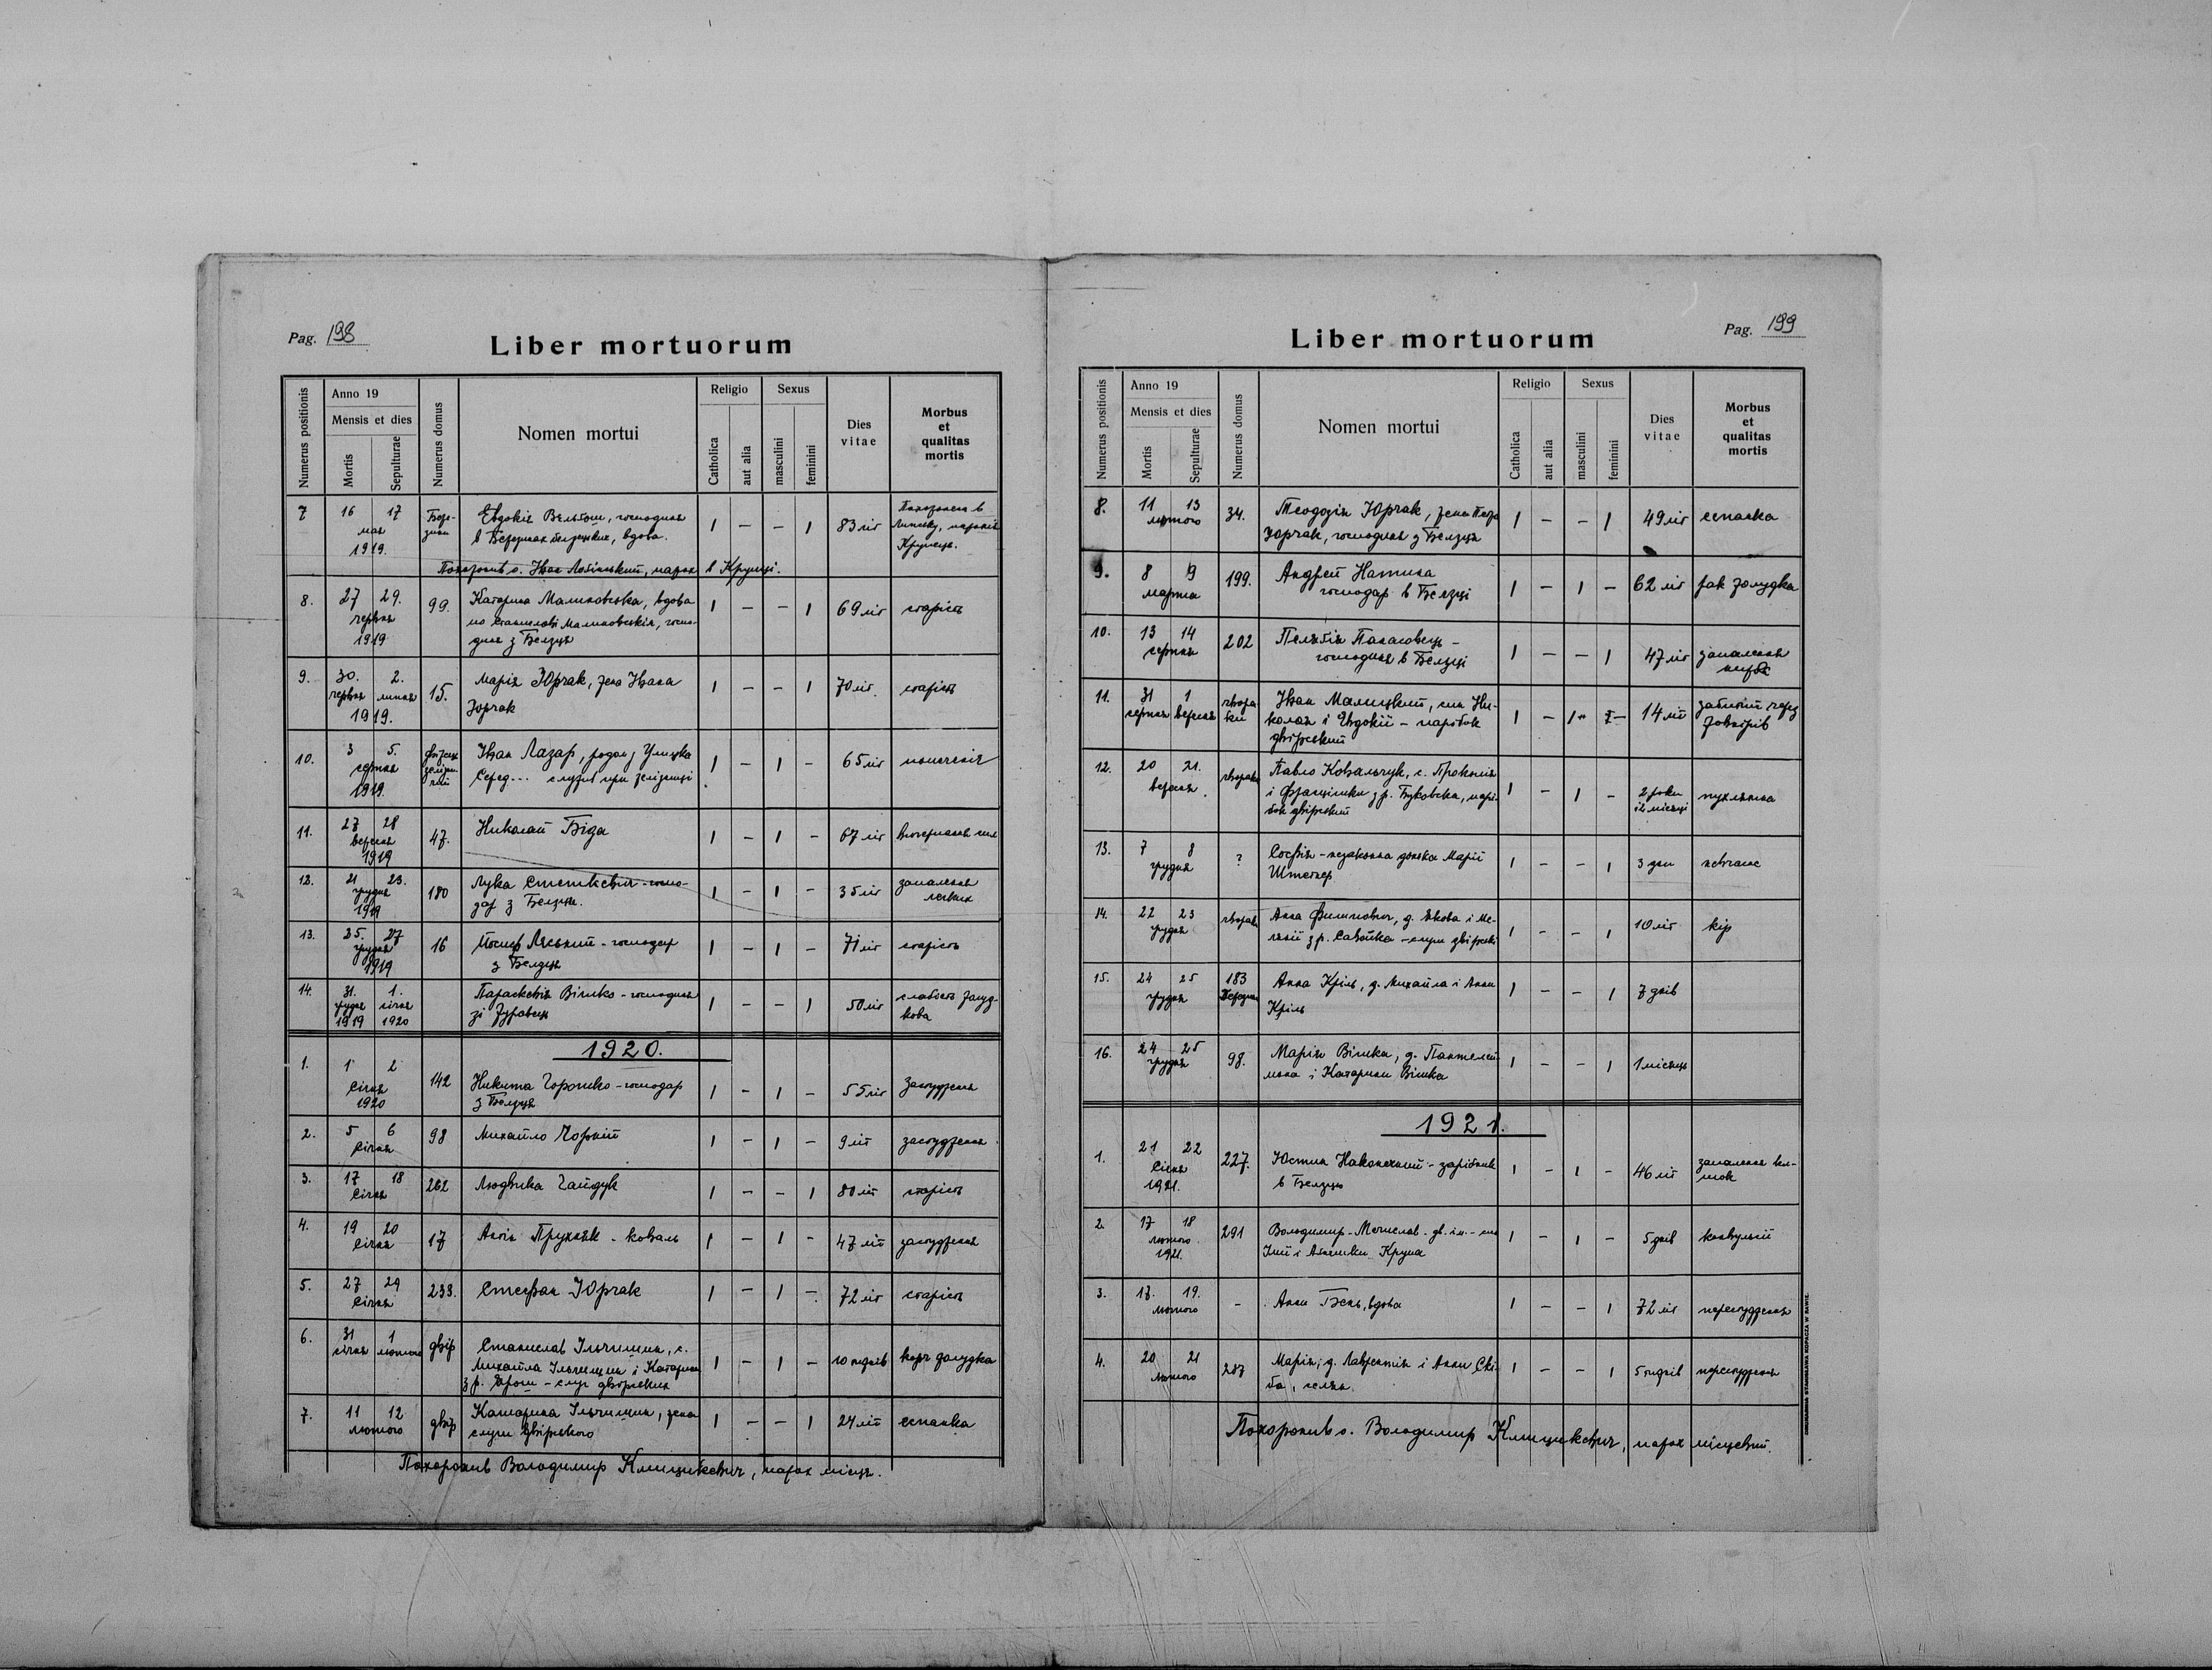 Pag. 198
Liber mortuorum
Numerus positionis
Anno 19
Mensis et dies
Mortis
Sepulturae
Numerus domus
Nomen mortui
Religio
Catholica
aut alia
Sexus
masculini
feminini
Dies vitae
Morbus et qualitas mortis
7 16 17 Евдокія господиня 1 – – 1 83 літ Похоронена в
мая в белзецких, вдова.
1919.
Похоронив о. Іван парох в
8. 27 29. 99. Катарина Малиновська, вдова 1 – – 1 69 літ старість
червня по Станиславі Малиновскім, госпо-
1919 диня з Белзця
9. 30. 2. 15. Марія Юрчак, жена Івана 1 – – 1 70 літ. старість
червня липня Юрчак
1919.
10. 3 5. Іван Лазар, родом з 1 – 1 – 65 літ
серпня Серед... при зелізници
1919.
11. 27 28 47. Николай Біда 1 – 1 – 67 літ
вересня
1919
12. 21 23. 180 Лука Стеткевич - госпо- 1 – 1 – 35 літ запалення
грудня дар з Белзця. легких
1919
13. 25. 27 16 Йосиф - господар 1 – 1 – 71 літ старість
грудня з Белзця
1919
14. 31. 1. Параскевія Вішко - господиня 1 – – 1 50 літ слабість жолуд-
грудня січня зі Журавець кова
1919 1920
1920.
1. 1 2 142 Никита Горошко - господар 1 – 1 – 55 літ Застудження
Січня з Белзця
1920
2. 5 6 98 Михайло 1 – 1 – 9 літ застудження
Січня
3. 17 18 262 Людвика Гайдук 1 – – 1 80 літ старість
Січня
4. 19 20 17 - коваль 1 – 1 – 47 літ застудження
Січня
5. 27 29 233. Стефан Юрчак 1 – 1 – 72 літ старість
Січня
6. 31 1 двір Станислав Ільчишин, с. 1 – 1 – 10 жолудка
січня лютого Михайла Ільчишин і Катарини
з р. Ярош - слуг двірських
7. 11 12 двір Катарина Ільчишин, жена 1 – – 1 24 літ еспанка
лютого слуги двірського
Похоронив Володимир Клищикевич, парох місця.
Liber mortuorum
Pag. 199
Numerus positionis
Anno 19
Mensis et dies
Mortis
Sepulturae
Numerus domus
Nomen mortui
Religio
Catholica
aut alia
Sexus
masculini
feminini
Dies vitae
Morbus et qualitas mortis
8. 11 13 34. Теодозія Юрчак, жена 1 – – 1 49 літ еспанка
лютого Юрчак, господиня з Белзця
9. 8 9 199. Андрей 1 – 1 – 62 літ рак жолудка
марта господар в Белзці
10. 13 14 202 Пелагія Панасовець - 1 – – 1 47 літ запалення
серпня господиня в Белзці нирок
11. 31 1 Іван Малицкий, син Ни- 1 – 1 – 14 літ забитий через
серпня вересня колая і Євдокії - парібок жовнірів
двірський
12. 20 21. Павло Ковальчук, с. Прокопія 1 – 1 – 2 роки
вересня і Францішки з р. Буковска, парі- і 2 місяці
бок двірский
13. 7 8 ? Софія - незаконна донька Марії 1 – – 1 3 дни
грудня
14. 22 23 Анна Филипович, д. Якова і Ме- 1 – – 1 10 літ кір
грудня ланії з р. - слуги двірські
15. 24 25 183 Анна Кріль, д. Михайла і Анни 1 – – 1 7 днів
грудня Кріль
16. 24 25 98. Марія Вішка, д. Пантелей- 1 – – 1 1 місяць
грудня мона і Катарини Вішка
1921.
1. 21 22 227. Юстин Наконечний - зарібник 1 – 1 – 46 літ запалення ки-
Січня в Белзцю шок
1921.
2. 17 18 291 Володимир - Мечислав - дв. ім. - син 1 – 1 – 5 днів конвульсії
лютого Ілії і Крупа
1921.
3. 17. 19. – Анна Бень, вдова 1 – – 1 72 літ перестудження
лютого
4. 20 21 287 Марія, д. Лаврентія і Анни Ски- 1 – – 1 5 перестудження
лютого ба, селян.
Похоронив о. Володимир Клищикевич, парох місцевий.
DRUKARNIA STANISŁAWA KOPACZA W RAWIE.